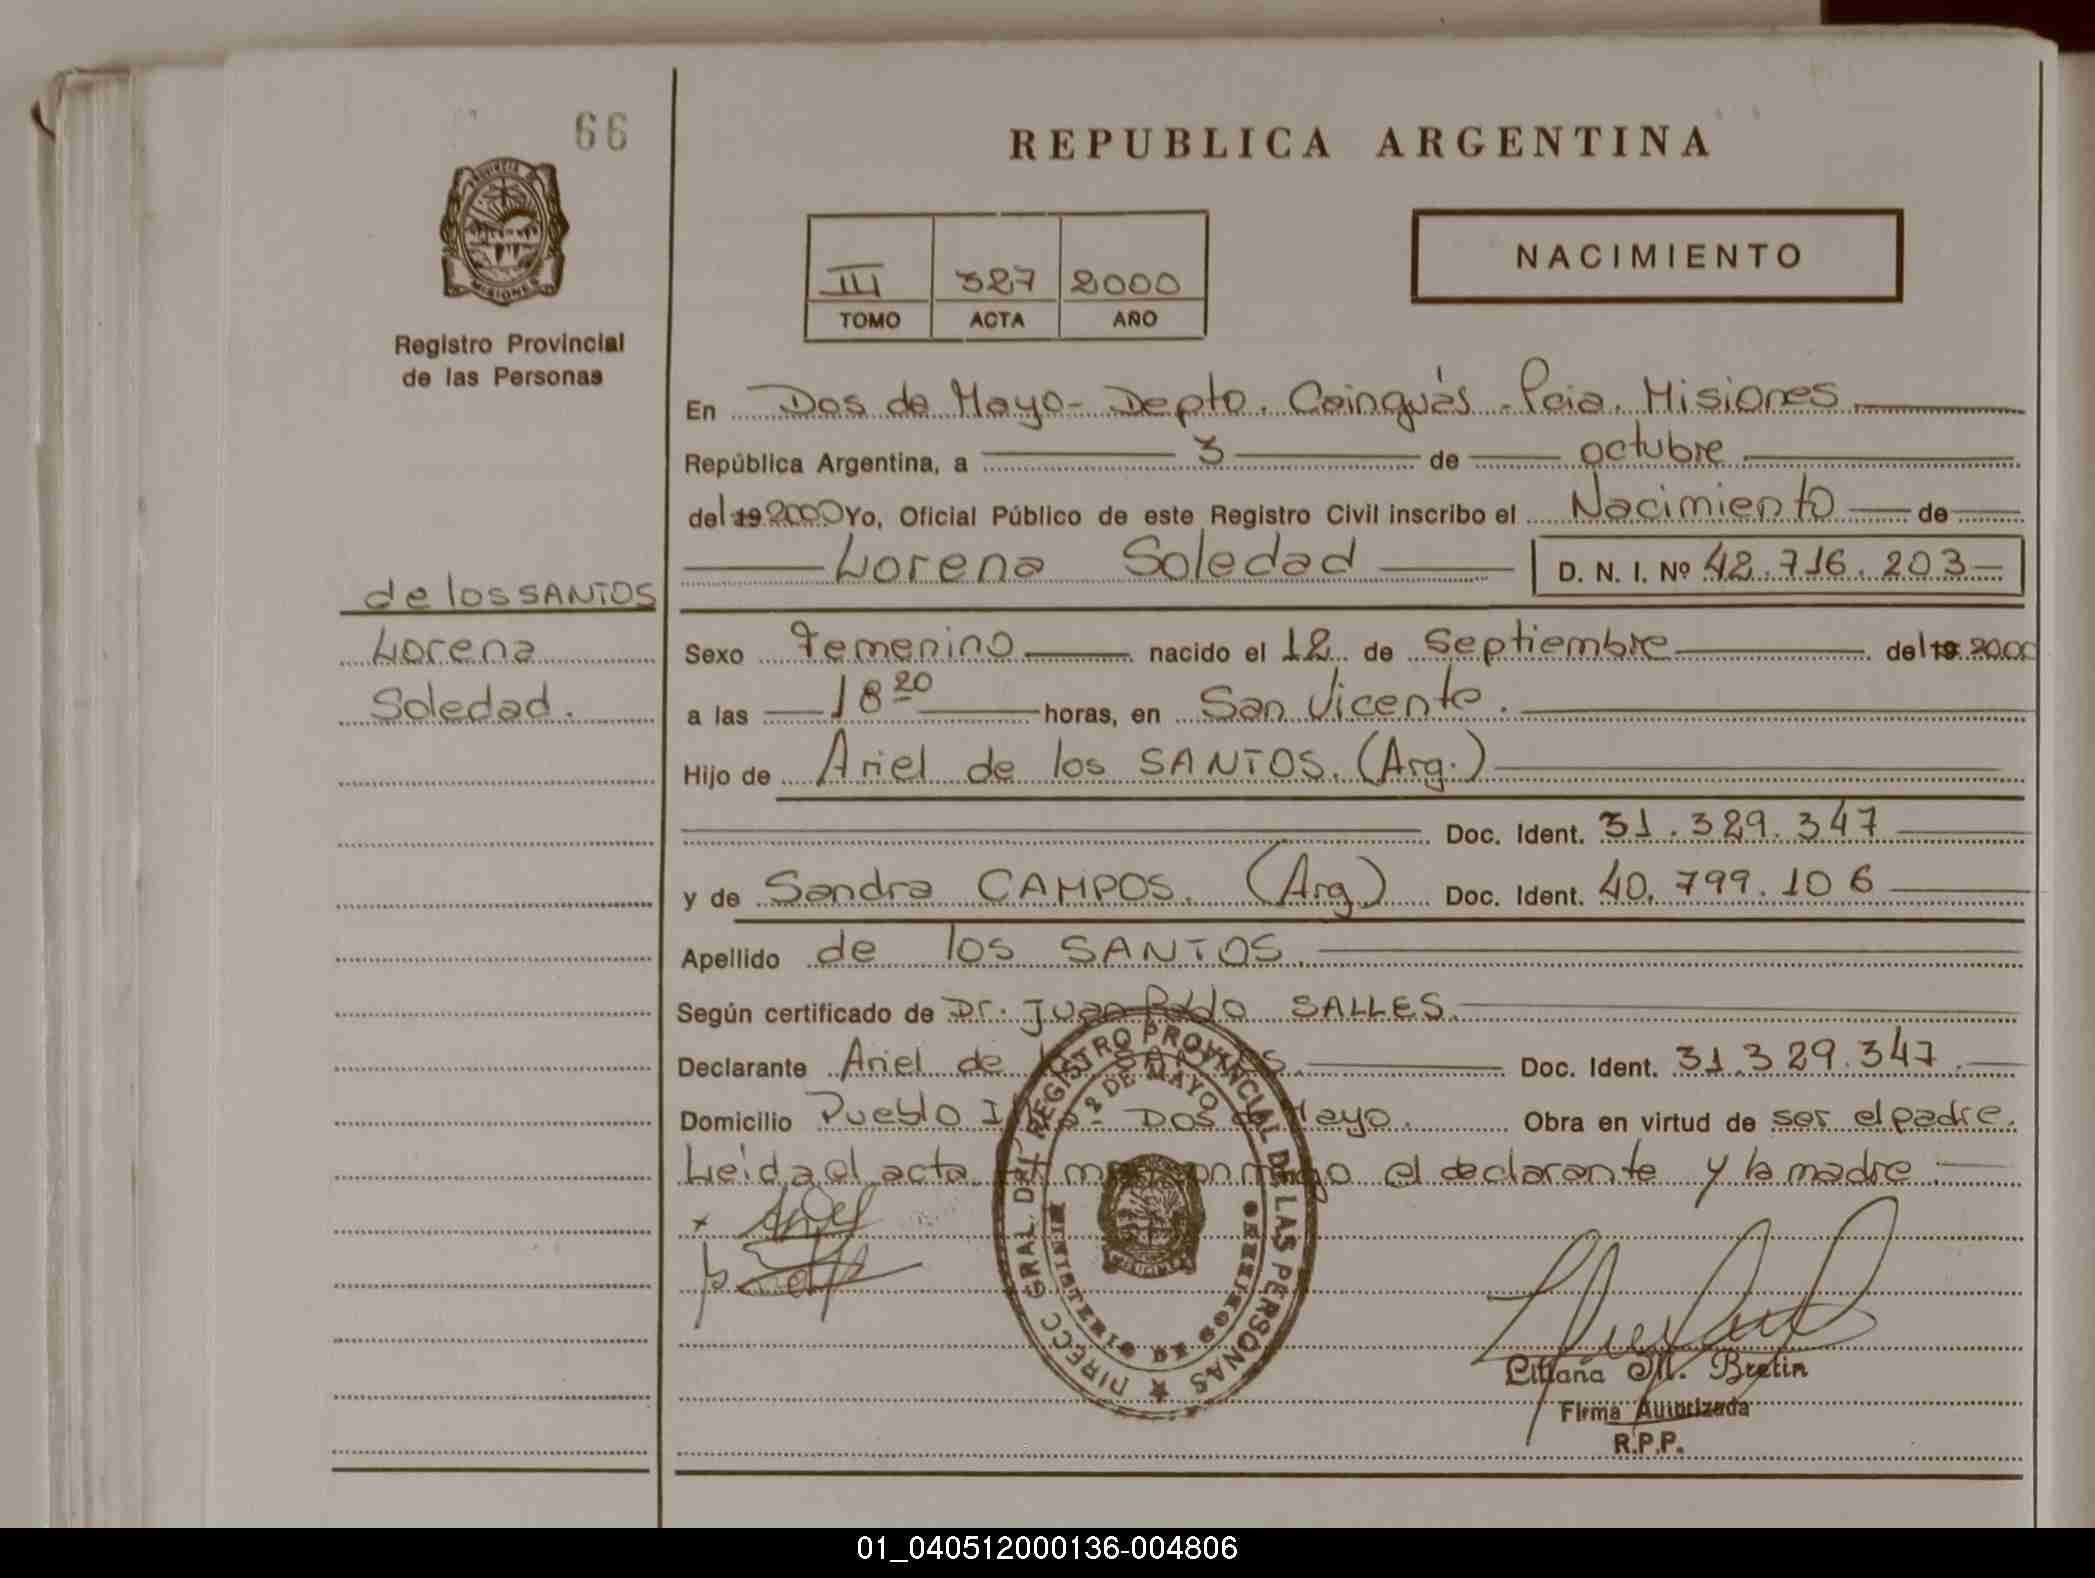 66
REPUBLICA ARGENTINA
PROVINCIA DE
MISIONES
Registro Provincial
de las Personas
III 327 2000
TOMO ACTA AÑO
NACIMIENTO
En Dos de Mayo - Depto. Cainguás - Pcia. Misiones
República Argentina, a 3 de octubre
del 19 2000 Yo, Oficial Público de este Registro Civil inscribo el Nacimiento de
Lorena Soledad D. N. I. Nº 42.716.203
de los SANTOS
Lorena
Soledad.
Sexo Femenino nacido el 12 de Septiembre del 19 2000
a las 18 20 horas, en San Vicente.
Hijo de Ariel de los SANTOS. (Arg.)
Doc. Ident. 31.329.347
y de Sandra CAMPOS. (Arg) Doc. Ident. 40.799.106
Apellido de los SANTOS.
Según certificado de Dr. Juan Pablo SALLES.
Declarante Ariel de Doc. Ident. 31.329.347
Domicilio Pueblo Dos de Mayo. Obra en virtud de ser el padre.
Leida el acta el declarante y la madre
DIRECC GRAL. DEL REGISTRO PROVINCIAL DE LAS PERSONAS
2 DE MAYO
MINISTERIO DE GOBIERNO
MISIONES
Liliana M. Bretin
Firma Autorizada
R.P.P.
01_040512000136-004806